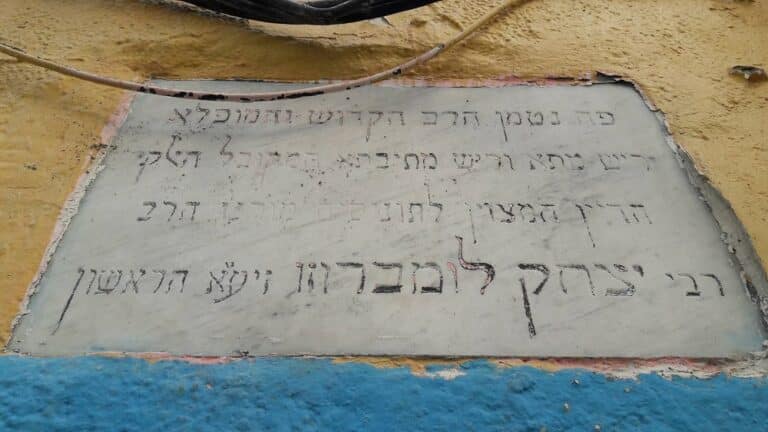 פה נטמן הרב הקדוש והמופלא
ריש מתא וריש מתיבתא המקובל האלקי
הדיין המצויין לתונסים מורינו הרב
רבי יצחק לומברוזו זיע״א הראשון